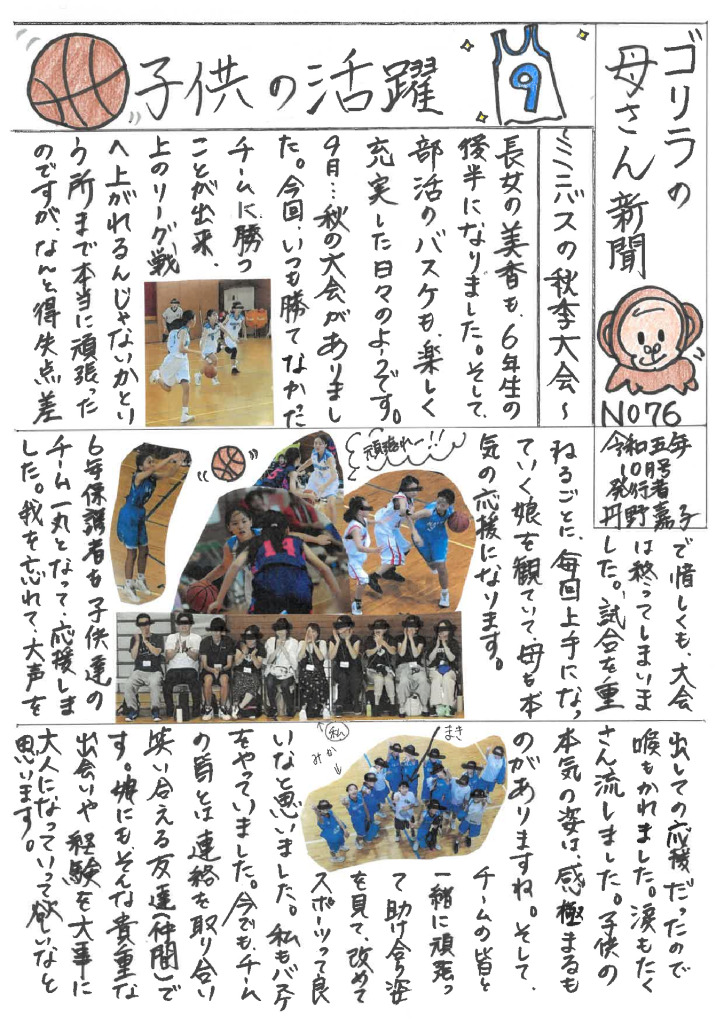 ゴリラの
母さん新聞
NO76
令和五年
10月号
発行者
丹野嘉子
子供の活躍
9
～ミニバスの秋季大会～
長女の美香も、6年生の
後半になりました。そして、
部活のバスケも、楽しく
充実した日々のようです。
9日…秋の大会がありまし
た。今回、いつも勝てなかた
チームに勝つ
ことが出来、
上のリーグ戦
へ上がれるんじゃないかとい
う所まで本当に頑張った
のですが、なんと得失点差
で惜しくも、大会
は終ってしまいま
した。試合を重
ねるごとに、毎回上手になっ
ていく娘を観ていて、母も本
気の応援になります。
頑張れー!!
6年保護者も子供達の
チーム一丸となって、応援しま
した。我を忘れて、大声を
私
みか
まき
出しての応援だったので
喉もかれました。涙もたく
さん流しました。子供の
本気の姿は、感極まるも
のがありますね。そして、
チームの皆と
一緒に頑張っ
て助け合う姿
を見て、改めて
スポーツって良
いなと思いました。私もバスケ
をやっていました。今でも、チーム
の皆とは連絡を取り合い
笑い合える友達(仲間)で
す。娘にも、そんな貴重な
出会いや経験を大事に
大人になっていって欲しいなと
思います。